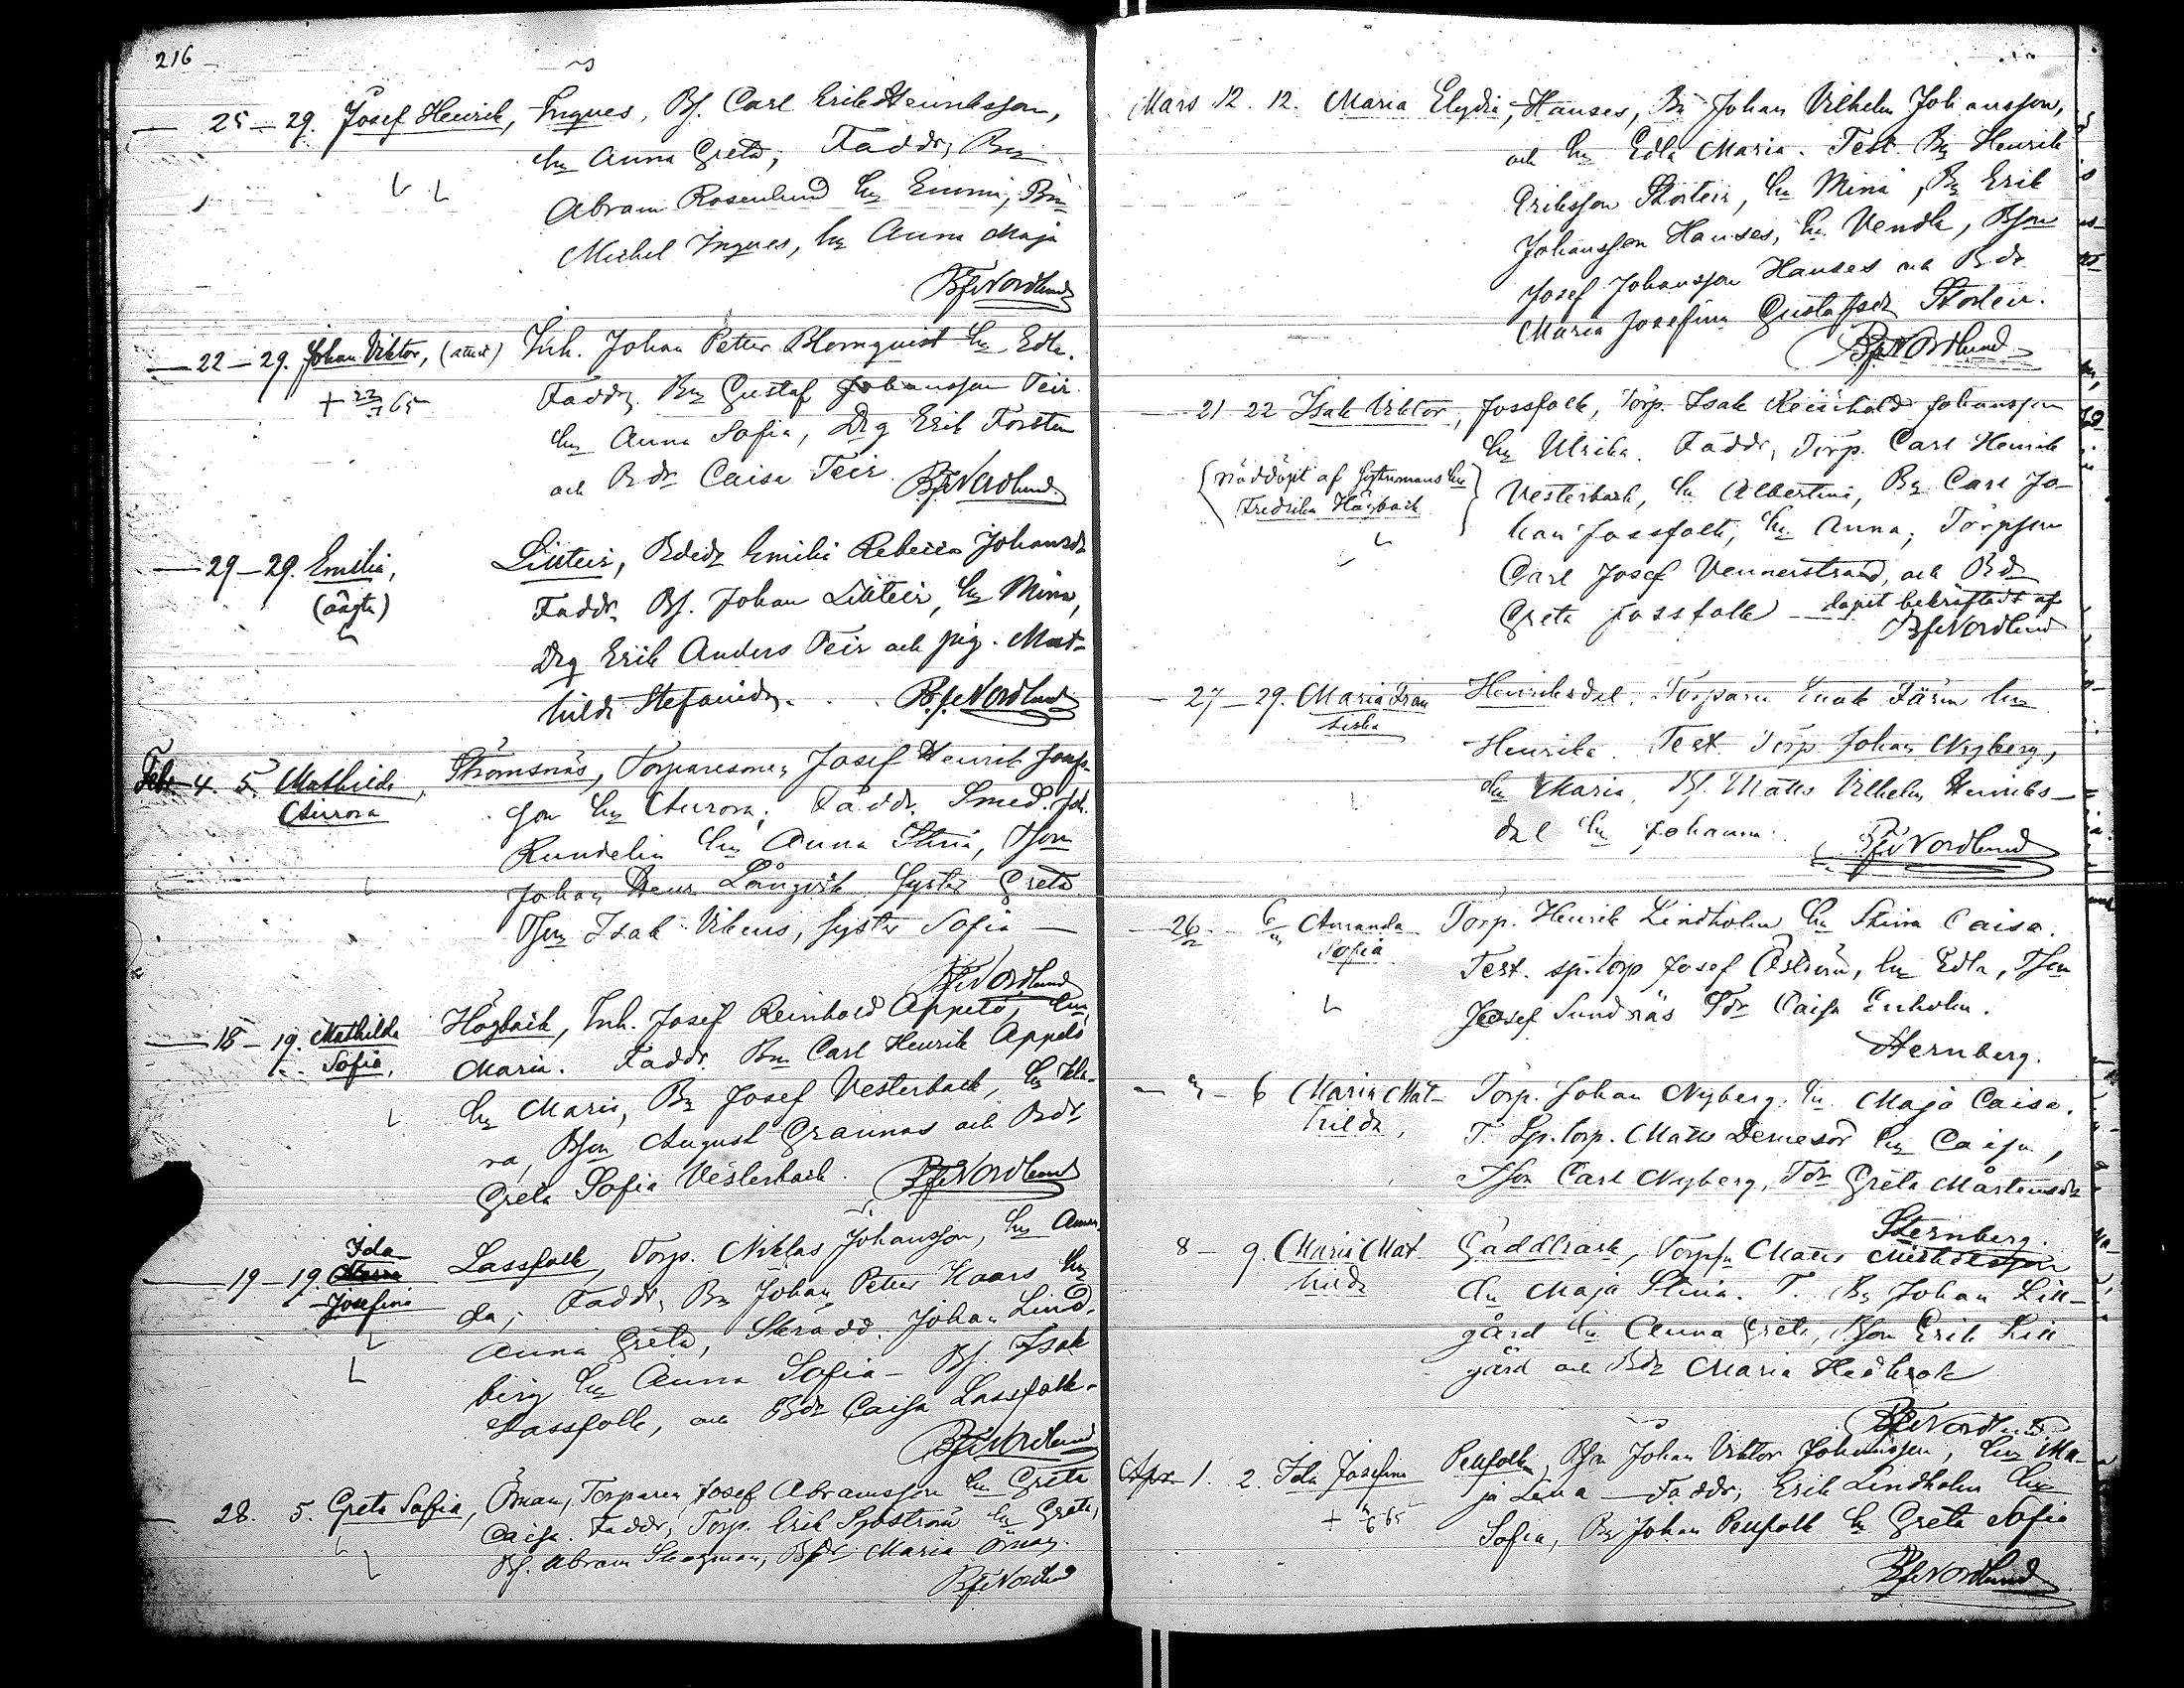 216
— 25 — 29. Josef Henrik, Ingves, Bf. Carl Erik Henriksson,
hu Anna Greta; Faddr, Bn
Abram Rosenlund hu Emmi, Bn
Michel Ingves, hu Anna Maja
Nordlund
— 22 — 29. Johan Viktor, Inh. Johan Petter Blomquist hu Edla.
+ 22/7 65
Faddr. Bn Gustaf Johansson Teir
hu Anna Sofia, Drg Erik Forsten
och Bdr Caisa Teir. Nordlund.
— 29 — 29. Emilia, Lillteir, Emilia Rebecca Johansdr
(oägta)
Faddr. Bf. Johan Lillteir, hu Mina,
Drg Erik Anders Teir och pig. Mat-
hilda Stefansdr. Nordlund
Febr 4. 5. Mathilda Strömsnäs, Torparesonen Josef Henrik
Aurora
son hu Aurora; Faddr. Smed. Joh.
Rundelin hu Anna Stina, Tson
Johan Långvik, Syster Greta
Tson Isak Vikens, syster Sofia —
Nordlund
— 18 — 19. Mathilda Högback, Inh. Josef Reinhold Appelö, hu
Sofia,
Maria. Faddr. Bn Carl Henrik Appelö
hu Maria, Bn Josef Vesterback, hu
ra, Bson August Grannas och Bdr
Greta Sofia Vesterback. Nordlund
— 19 — 19. Ida
Josefina
Lassfolk, Torp. Niklas Johansson, hu Aman-
da; Faddr, Bn Johan Petter Haars hu
Anna Greta, Skrädd. Johan Lind-
berg hu Anna Sofia — Bf. Isak
Lassfolk, och Bdr Caisa Lassfolk.
Nordlund
— 28. 5. Greta Sofia, Öman, Torparen Josef Abramsson hu Greta
Caisa. Faddr, Torp. Erik Sjöström hu Greta,
Bf. Abram Skogman, Maria Öman.
Nordlund
Mars 12. 12. Maria Elydia, Hanses, Bn Johan Vilhelm Johansson,
och hu Edla Maria. Test. Bn Henrik
Eriksson Storteir, hu Mina, Bn Erik
Johansson Hanses, hu Vendla, Bson
Josef Johansson Hanses och Bdr
Maria Josefina Gustafsdr Storteir.
Nordlund
— 21 22 Isak Viktor, Jossfolk, Torp. Isak Reinhold Johansson
hu Ulrika. Faddr, Torp. Carl Henrik
(nöddöpt af hu
Fredrika Högback)
Vesterback, hu Albertina, Bn Carl Jo-
han Jossfolk, hu Anna; Torpson
Carl Josef Vennerstrand, och Bdr
Greta Jossfolk — dopet bekräftadt af
Nordlund
— 27 — 29. Maria Fran
siska
Henriksdal. Torparen Enok Färm hu
Henrika. Test Torp. Johan Nyberg,
hu Maria, Bf. Matts Vilhelm Henriks-
dal hu Johanna. Nordlund
— 26/2. 6/ Amanda
Sofia
Torp. Henrik Lindholm hu Stina Caisa.
Test. sp. torp Josef Åström, hu Edla, Tson
Josef Sundnäs Tdr Caisa Enholm.
Sternberg.
— 3 — 6 Maria Mat-
hilda,
Torp. Johan Nyberg. hu Maja Caisa.
T. Sp. torp. Matts hu Caisa,
Tson Carl Nyberg, Tdr Greta Mårtensdr
Sternberg.
8 — 9. Maria Mat
hilda
Gäddträsk, Torpsn Matts Michelsson
hu Maja Stina. T. Bn Johan Lill-
gård hu Anna Greta, Bson Erik Lill
gård och Bdr Maria
Nordlund
Apr 1. 2. Ida Josefina Pellfolk, Bsn Johan Viktor Johansson, hu Ma-
ja Lena — Faddr, Erik Lindholm hu
Sofia, Bn Johan Pellfolk hu Greta Sofia
Nordlund